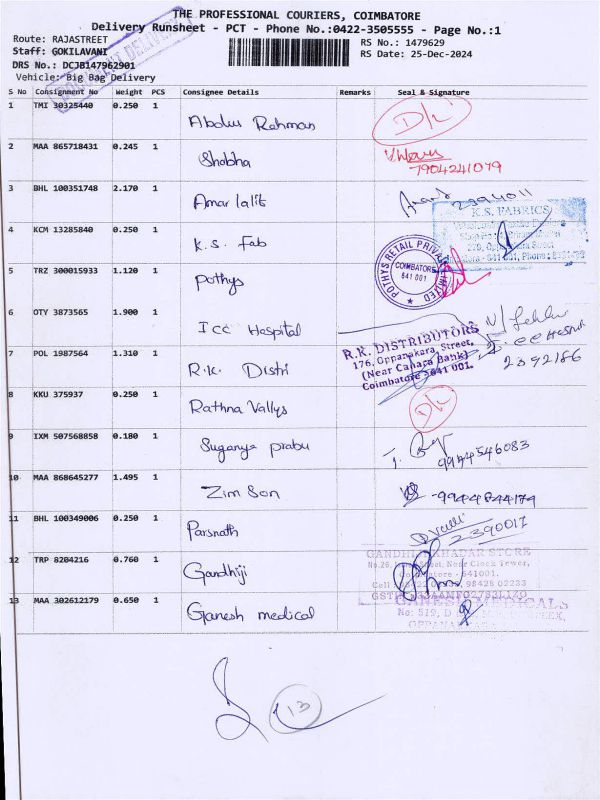 THE PROFESSIONAL COURIERS, COIMBATORE
Delivery Runsheet - PCT - Phone No.:0422-3505555 - Page No.:1
Route: RAJASTREET
Staff: GOKILAVANI
DRS No.: DCJB147962901
Vehicle: Big Bag Delivery
RS No.: 1479629
RS Date: 25-Dec-2024
S No Consignment No Weight PCS Consignee Details Remarks Seal & Signature
1 TMI 30325440 0.250 1 Abdul Rahman D/L
2 MAA 865718431 0.245 1 Shobha 7904241079
3 BHL 100351748 2.170 1 Amar lalit 2394011
4 KCM 13285840 0.250 1 K.S. Fab
K.S. FABRICS
5 TRZ 300015933 1.120 1 Pothys
POTHYS RETAIL PRIVATE LIMITED
COIMBATORE
641 001
6 OTY 3873565 1.900 1 ICC Hospital
7 POL 1987564 1.310 1 R.K. Distri 2392186
R.K. DISTRIBUTORS
176, Oppanakara, Street,
(Near Canara Bank)
Coimbatore - 641 001.
8 KKU 375937 0.250 1 Rathna Vallys D/L
9 IXM 507568858 0.180 1 Suganya prabu 9944546083
10 MAA 868645277 1.495 1 Zim Son -9944844179
11 BHL 100349006 0.250 1 Parsnath 2390017
12 TRP 8204216 0.760 1 Gandhiji
GANDHI KHADAR STORE
Street, Near Clock Tower,
Coimbatore - 641001.
13 MAA 302612179 0.650 1 Ganesh medical
GANESH MEDICALS
13